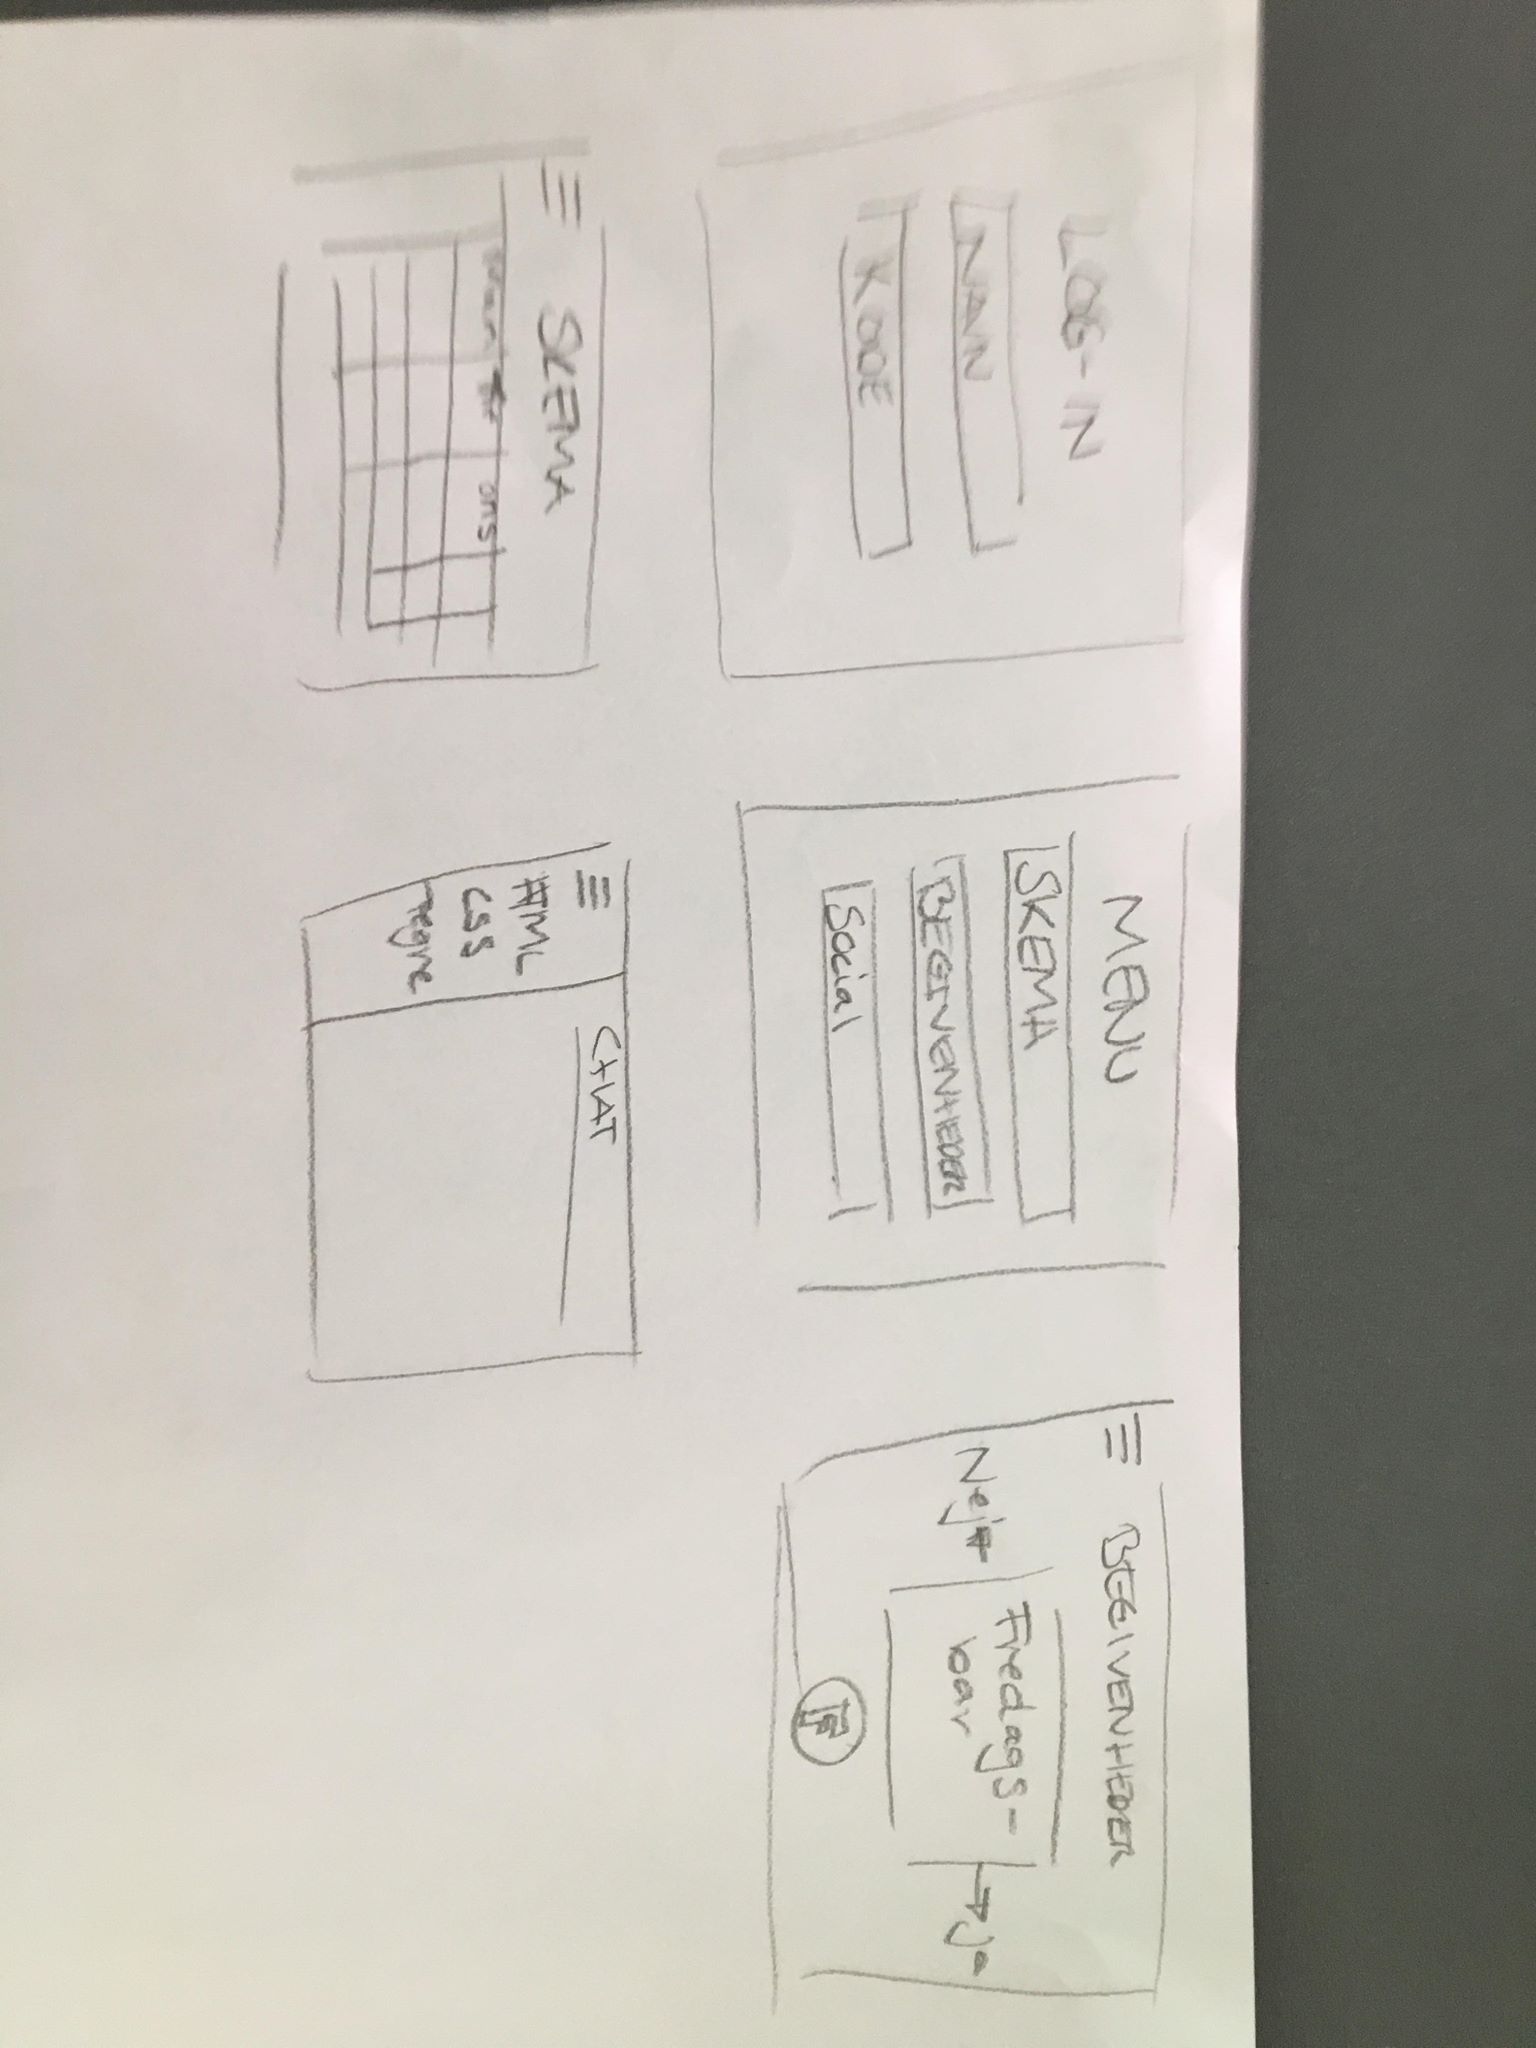 LOG-IN
NAVN
KODE
MENU
SKEMA
BEGIVENHEDER
Social
BEGIVENHEDER
Nej
Fredags-
bar
Ja
SKEMA
man
ons
CHAT
HTML
CSS
Tegne